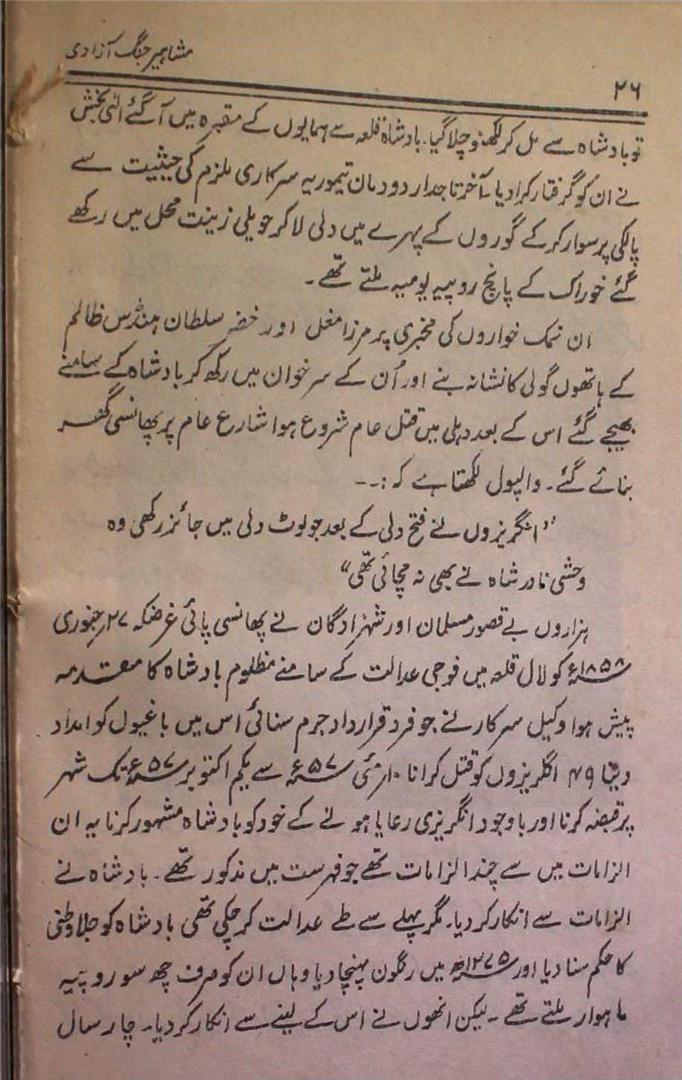 مشاہیر جنگ آزادی
۲۶
تو بادشاہ سے مل کر لکھنؤ چلا گیا۔ بادشاہ قلعہ سے ہمایوں کے مقبرہ میں آگئے الٰہی بخش
نے ان کو گرفتار کرادیا۔ آخر تاجدار دودمان تیموریہ سرکاری ملزم کی حیثیت سے
پالکی پر سوار کرکے گوروں کے پہرے میں دلی لاکر حویلی زینت محل میں رکھے
گئے خوراک کے پانچ روپیہ یومیہ ملتے تھے۔
ان نمک خواروں کی مخبری پر مرزا مغل اور خضر سلطان ہنڈرس ظالم
کے ہاتھوں گولی کا نشانہ بنے اور اُن کے سر خوان میں رکھ کر بادشاہ کے سامنے
بھیجے گئے اس کے بعد دہلی میں قتل عام شروع ہوا شارع عام پر پھانسی گھر
بنائے گئے۔ والپول لکھتا ہے کہ:۔۔
”انگریزوں نے فتح دلی کے بعد جو لوٹ دلی میں جائز رکھی وہ
وحشی نادر شاہ نے بھی نہ مچائی تھی“
ہزاروں بے قصور مسلمان اور شہزادگان نے پھانسی پائی غرضکہ ۲۷ جنوری
۱۸۵۸ء کو لال قلعہ میں فوجی عدالت کے سامنے مظلوم بادشاہ کا مقدمہ
پیش ہوا وکیل سرکار نے جو فرد قرارداد جرم سنائی اس میں باغیوں کو امداد
دینا ۴۹ انگریزوں کو قتل کرانا ۱۰ مئی ۵۷ء سے یکم اکتوبر ۵۷ء تک شہر
پر قبضہ کرنا اور باوجود انگریزی رعایا ہونے کے خود کو بادشاہ مشہور کرنا یہ ان
الزامات میں سے چند الزامات تھے جو فہرست میں مذکور تھے۔ بادشاہ نے
الزامات سے انکار کردیا۔ مگر پہلے سے طے عدالت کرچکی تھی بادشاہ کو جلاوطنی
کا حکم سنادیا اور ۱۲۷۵ھ میں رنگون پہنچادیا وہاں ان کو صرف چھ سو روپیہ
ماہوار ملتے تھے۔ لیکن انھوں نے اس کے لینے سے انکار کردیا۔ چار سال